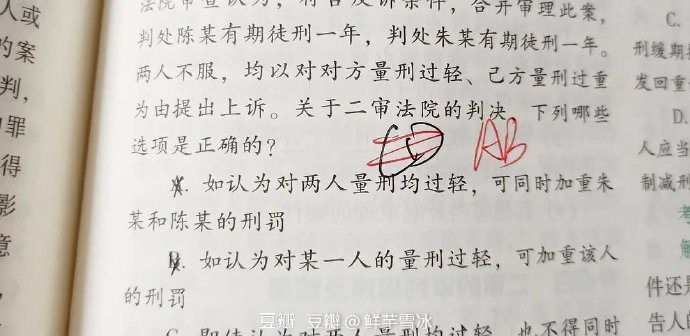 法院审查认为,符合反诉条件,合并审理此案,
判处陈某有期徒刑一年,判处朱某有期徒刑一年。
两人不服,均以对对方量刑过轻、己方量刑过重
为由提出上诉。关于二审法院的判决,下列哪些
选项是正确的?
CD
AB
A. 如认为对两人量刑均过轻,可同时加重朱
某和陈某的刑罚
B. 如认为对某一人的量刑过轻,可加重该人
的刑罚
C. 即使认为对两人量刑均过轻,也不得同时
人或
的案
判,
罪
得
影
意
C.
刑缓期执
发回重
D.
人应当
制减刑
考
解
件还是
告人
豆瓣 豆瓣@鲜芋雪冰